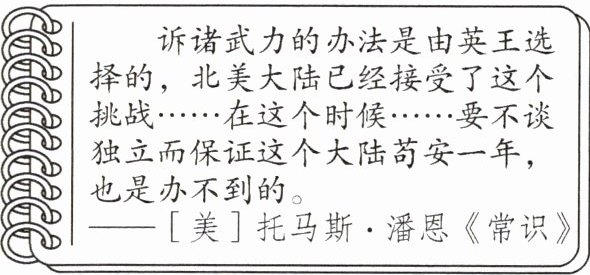 诉诸武力的办法是由英王选
择的，北美大陆已经接受了这个
挑战……在这个时候……要不谈
独立而保证这个大陆苟安一年，
也是办不到的。
——［美］托马斯·潘恩《常识》